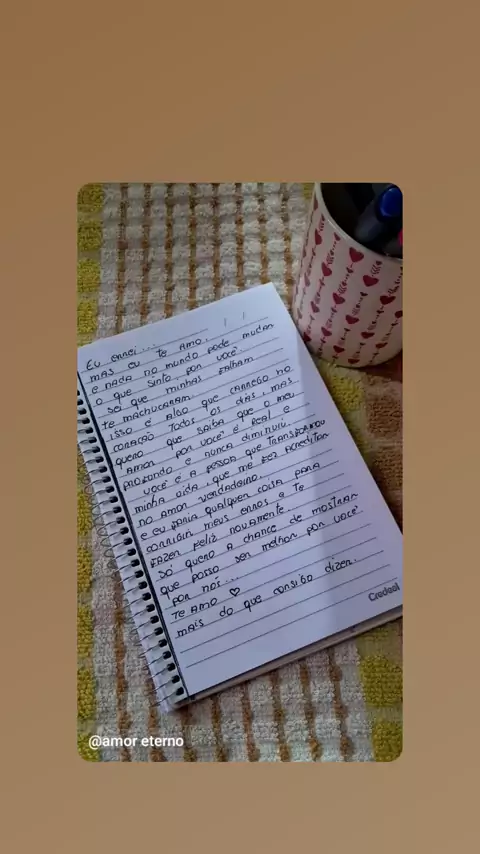 Eu errei...
mas eu te amo.
e nada no mundo pode mudar
o que sinto por você.
sei que minhas falhas
te machucaram.
isso é algo que carrego no
coração todos os dias, mas
quero que saiba que o meu
amor por você é real e
profundo e nunca diminuiu.
você é a pessoa que transformou
minha vida, que me fez acreditar
no amor verdadeiro.
e eu faria qualquer coisa para
corrigir meus erros e te
fazer feliz novamente.
só quero a chance de mostrar
que posso ser melhor por você
por nós...
te amo ♡
mais do que consigo dizer.
Credeal
@amor eterno